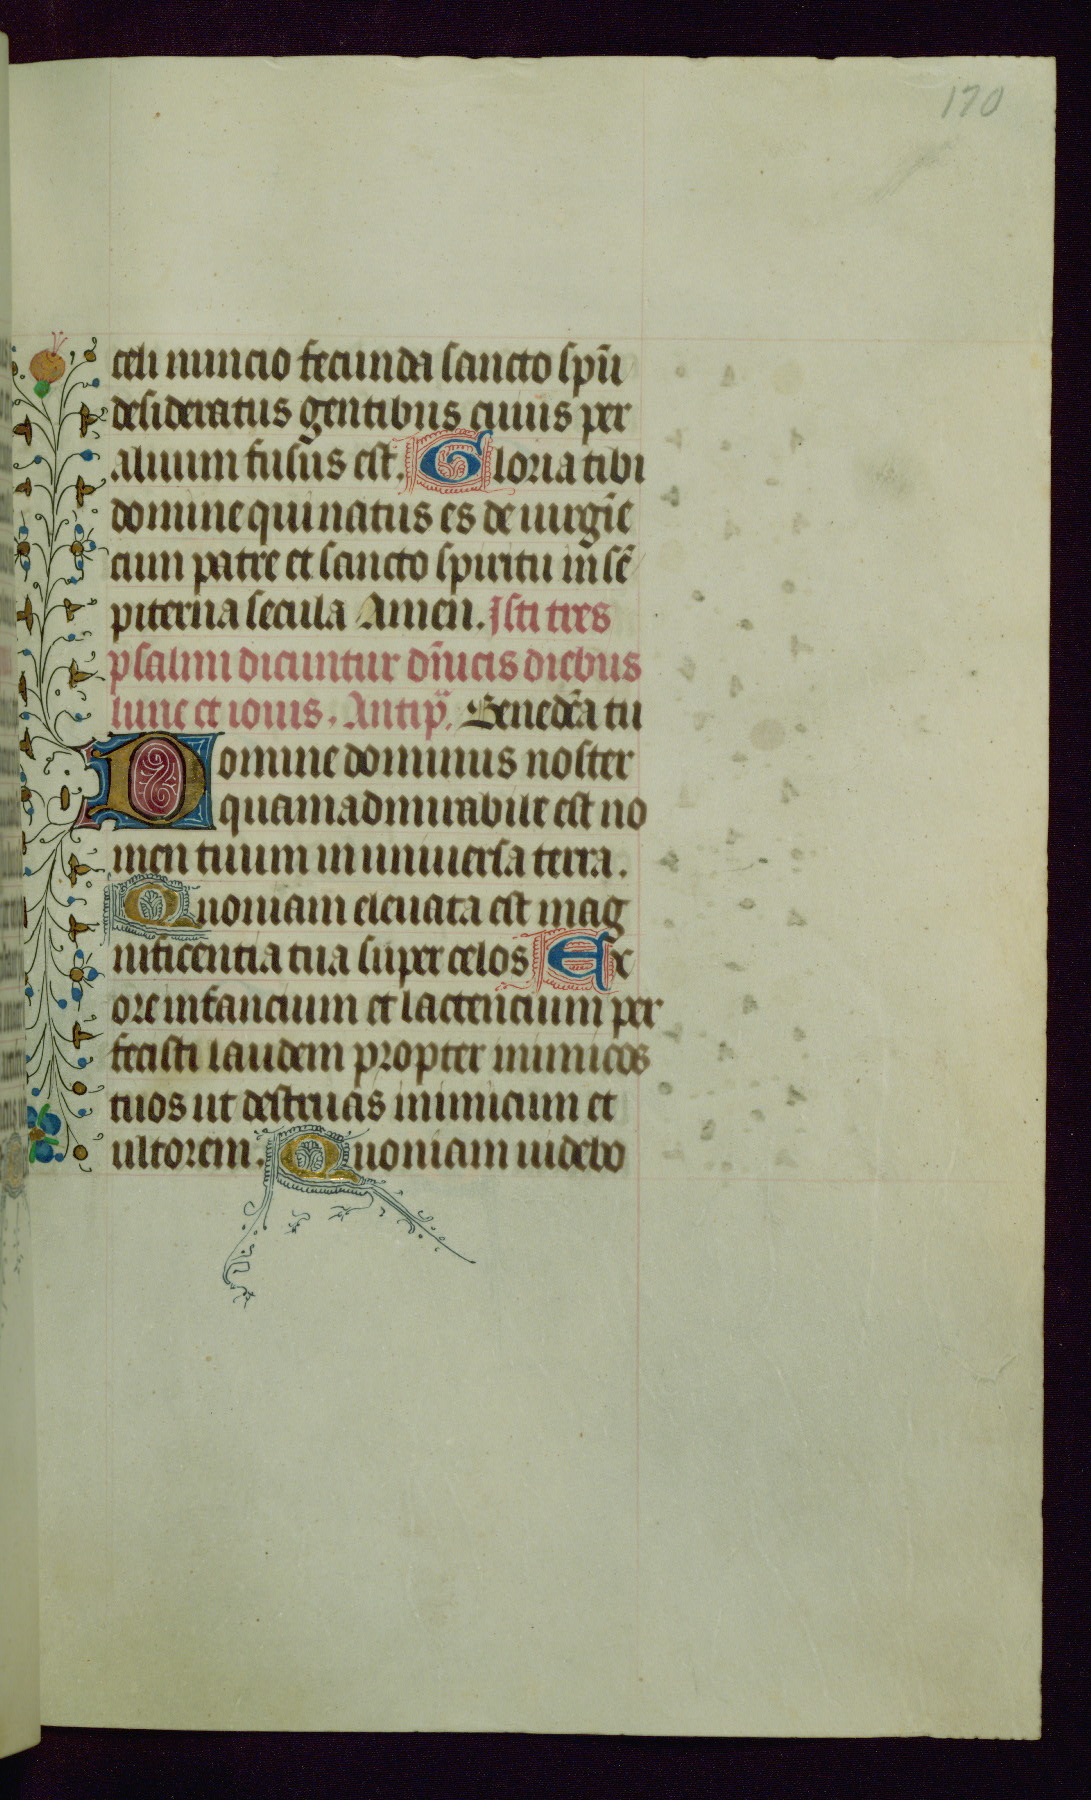 170
celi nuncio fecunda sancto spũ
desideratus gentibus cuius per
aluum fusus est. Gloria tibi
domine qui natus es de uirgĩe
cum patre et sancto spiritu in sẽ
piterna secula Amen. Isti tres
psalmi dicuntur dñicis diebus
lune et iouis. Antip̃. Benedc̃a tu
Domine dominus noster
quam admirabile est no
men tuum in uniuersa terra.
Quoniam eleuata est mag
nificentia tua super celos Ex
ore infancium et lactencium per
fecisti laudem propter inimicos
tuos ut destruas inimicum et
ultorem. Quoniam uidebo